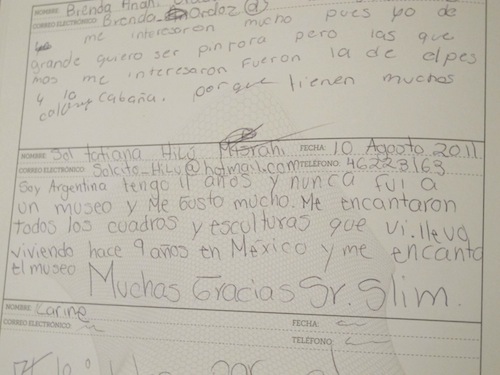 NOMBRE Brenda Anahí
CORREO ELECTRÓNICO Brenda Ordaz @
me interesaron mucho pues yo de
grande quiero ser pintora pero las que
mas me interesaron fueron la de el pes
y la cabaña. porque tienen muchos
NOMBRE Sol tatiana Hilú FECHA: 10 Agosto 2011
CORREO ELECTRÓNICO Solcito_Hilu@hotmail.com TELÉFONO: 46223163
Soy Argentina tengo 11 años y nunca fui a
un museo y Me Gusto mucho. Me encantaron
todos los cuadros y esculturas que vi. llevo
viviendo hace 9 años en México y me encanto
el museo
Muchas Gracias Sr. Slim.
NOMBRE: Karine
CORREO ELECTRÓNICO: FECHA:
TELÉFONO: